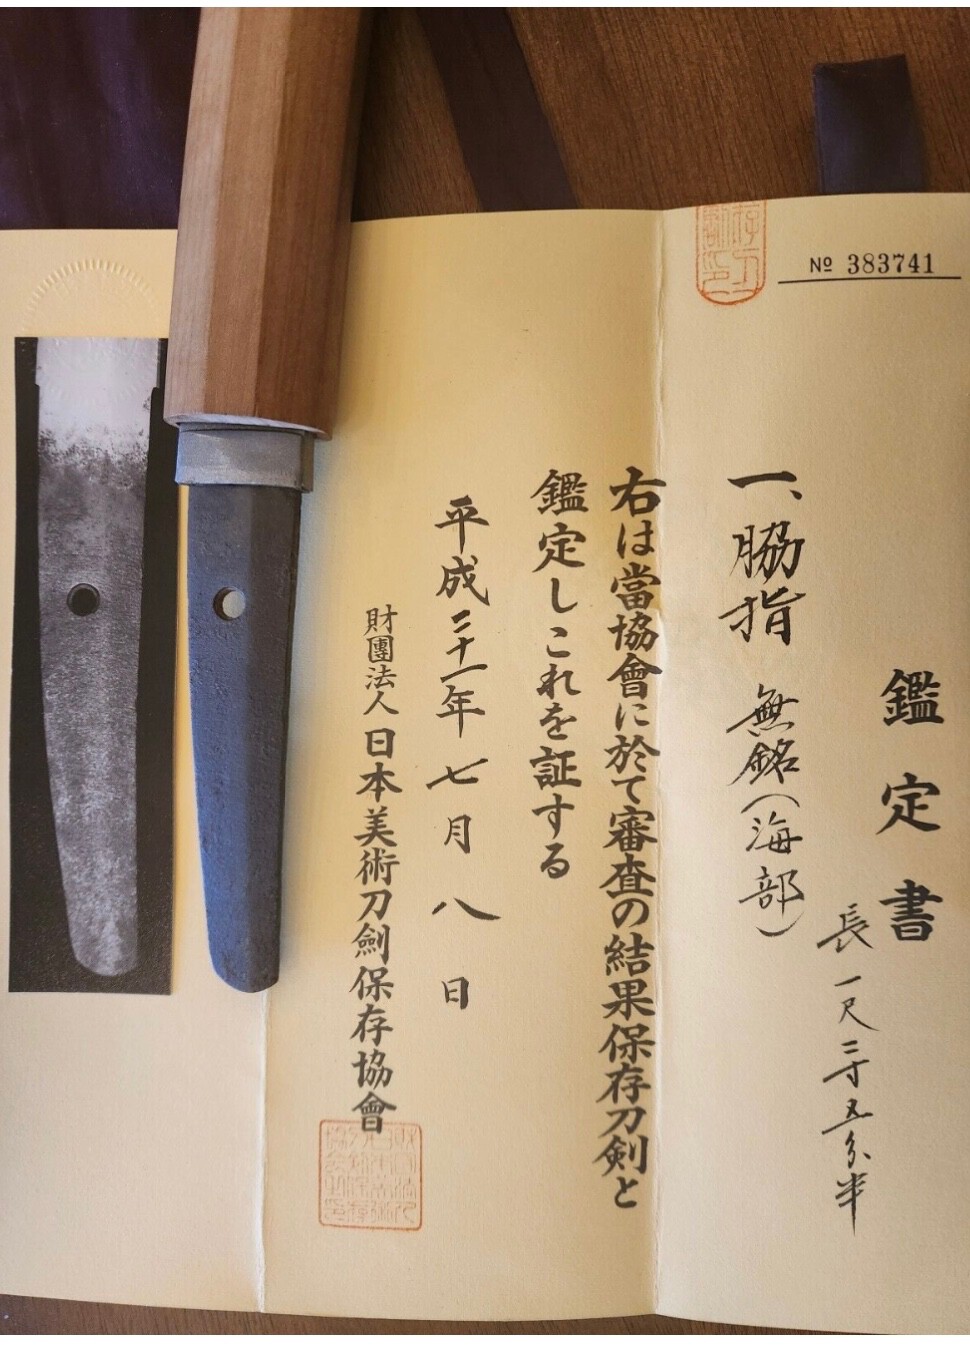 № 383741
鑑定書
長一尺二寸五分半
一、脇指 無銘(海部)
右は當協會に於て審査の結果保存刀剣と
鑑定しこれを証する
平成二十一年七月八日
財團法人日本美術刀劍保存協會